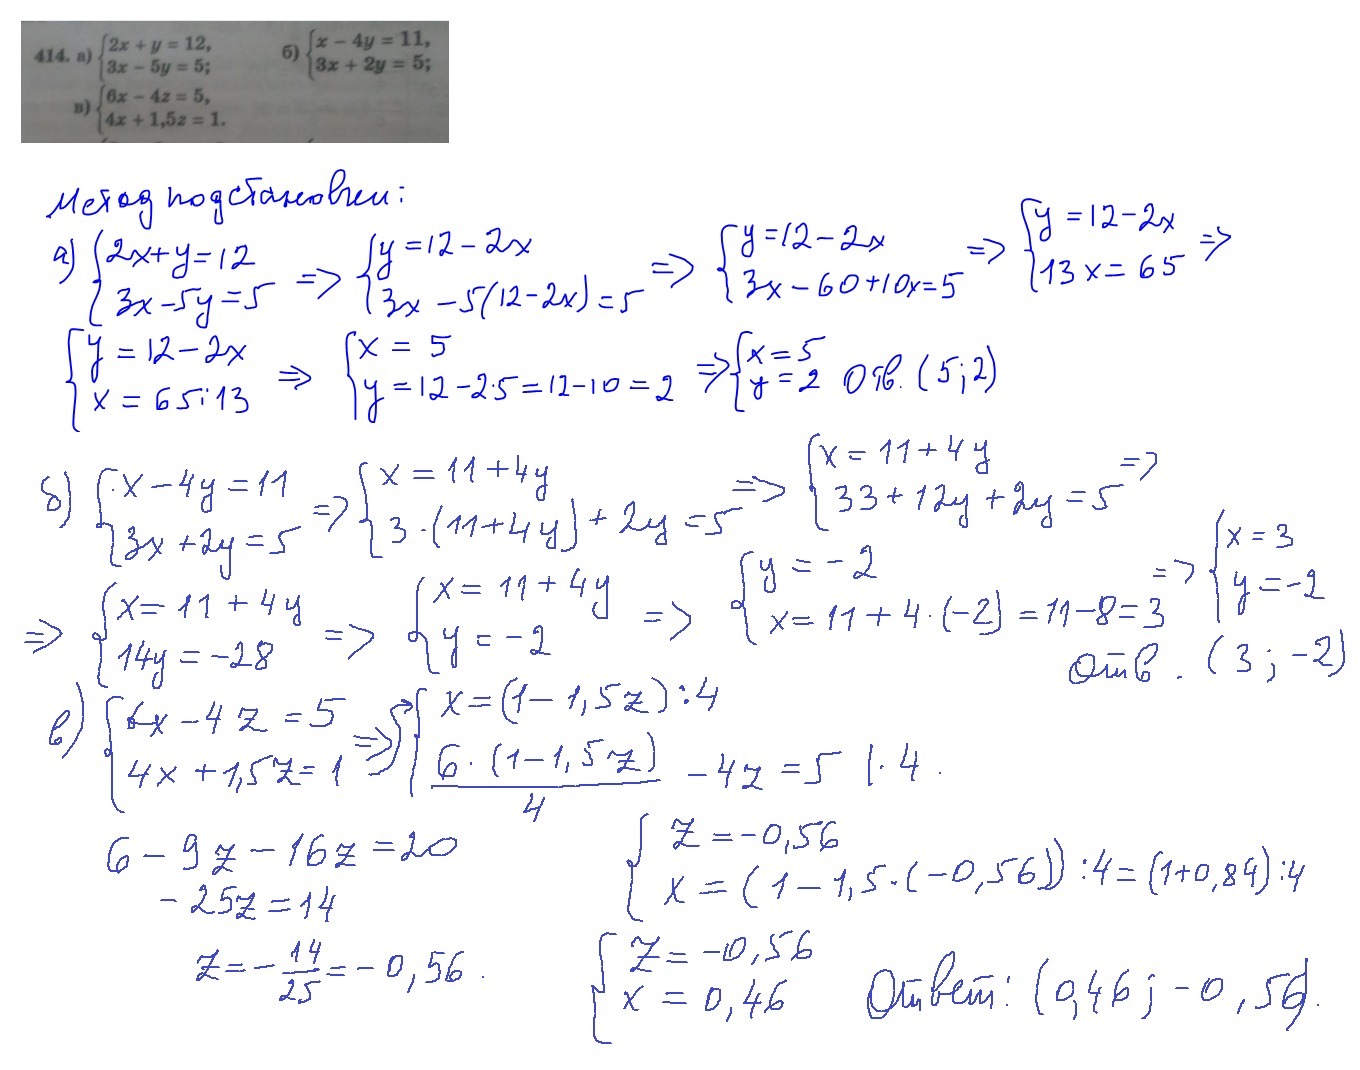 414. а) {2x + y = 12, 3x − 5y = 5;
б) {x − 4y = 11, 3x + 2y = 5;
в) {6x − 4z = 5, 4x + 1,5z = 1.
Метод подстановки:
а) {2x+y=12 3x-5y=5 => {y=12-2x 3x-5(12-2x)=5 => {y=12-2x 3x-60+10x=5 => {y=12-2x 13x=65 =>
{y=12-2x x=65:13 => {x=5 y=12-2·5=12-10=2 => {x=5 y=2 Отв. (5;2)
б) {x-4y=11 3x+2y=5 => {x=11+4y 3·(11+4y)+2y=5 => {x=11+4y 33+12y+2y=5 =>
=> {x=11+4y 14y=-28 => {x=11+4y y=-2 => {y=-2 x=11+4·(-2)=11-8=3 => {x=3 y=-2
Отв. (3;-2)
в) {6x-4z=5 4x+1,5z=1 => {x=(1-1,5z):4 6·(1-1,5z)/4 -4z=5 |·4.
6-9z-16z=20
-25z=14
z=-14/25=-0,56.
{z=-0,56 x=(1-1,5·(-0,56)):4=(1+0,84):4
{z=-0,56 x=0,46 Ответ: (0,46;-0,56).